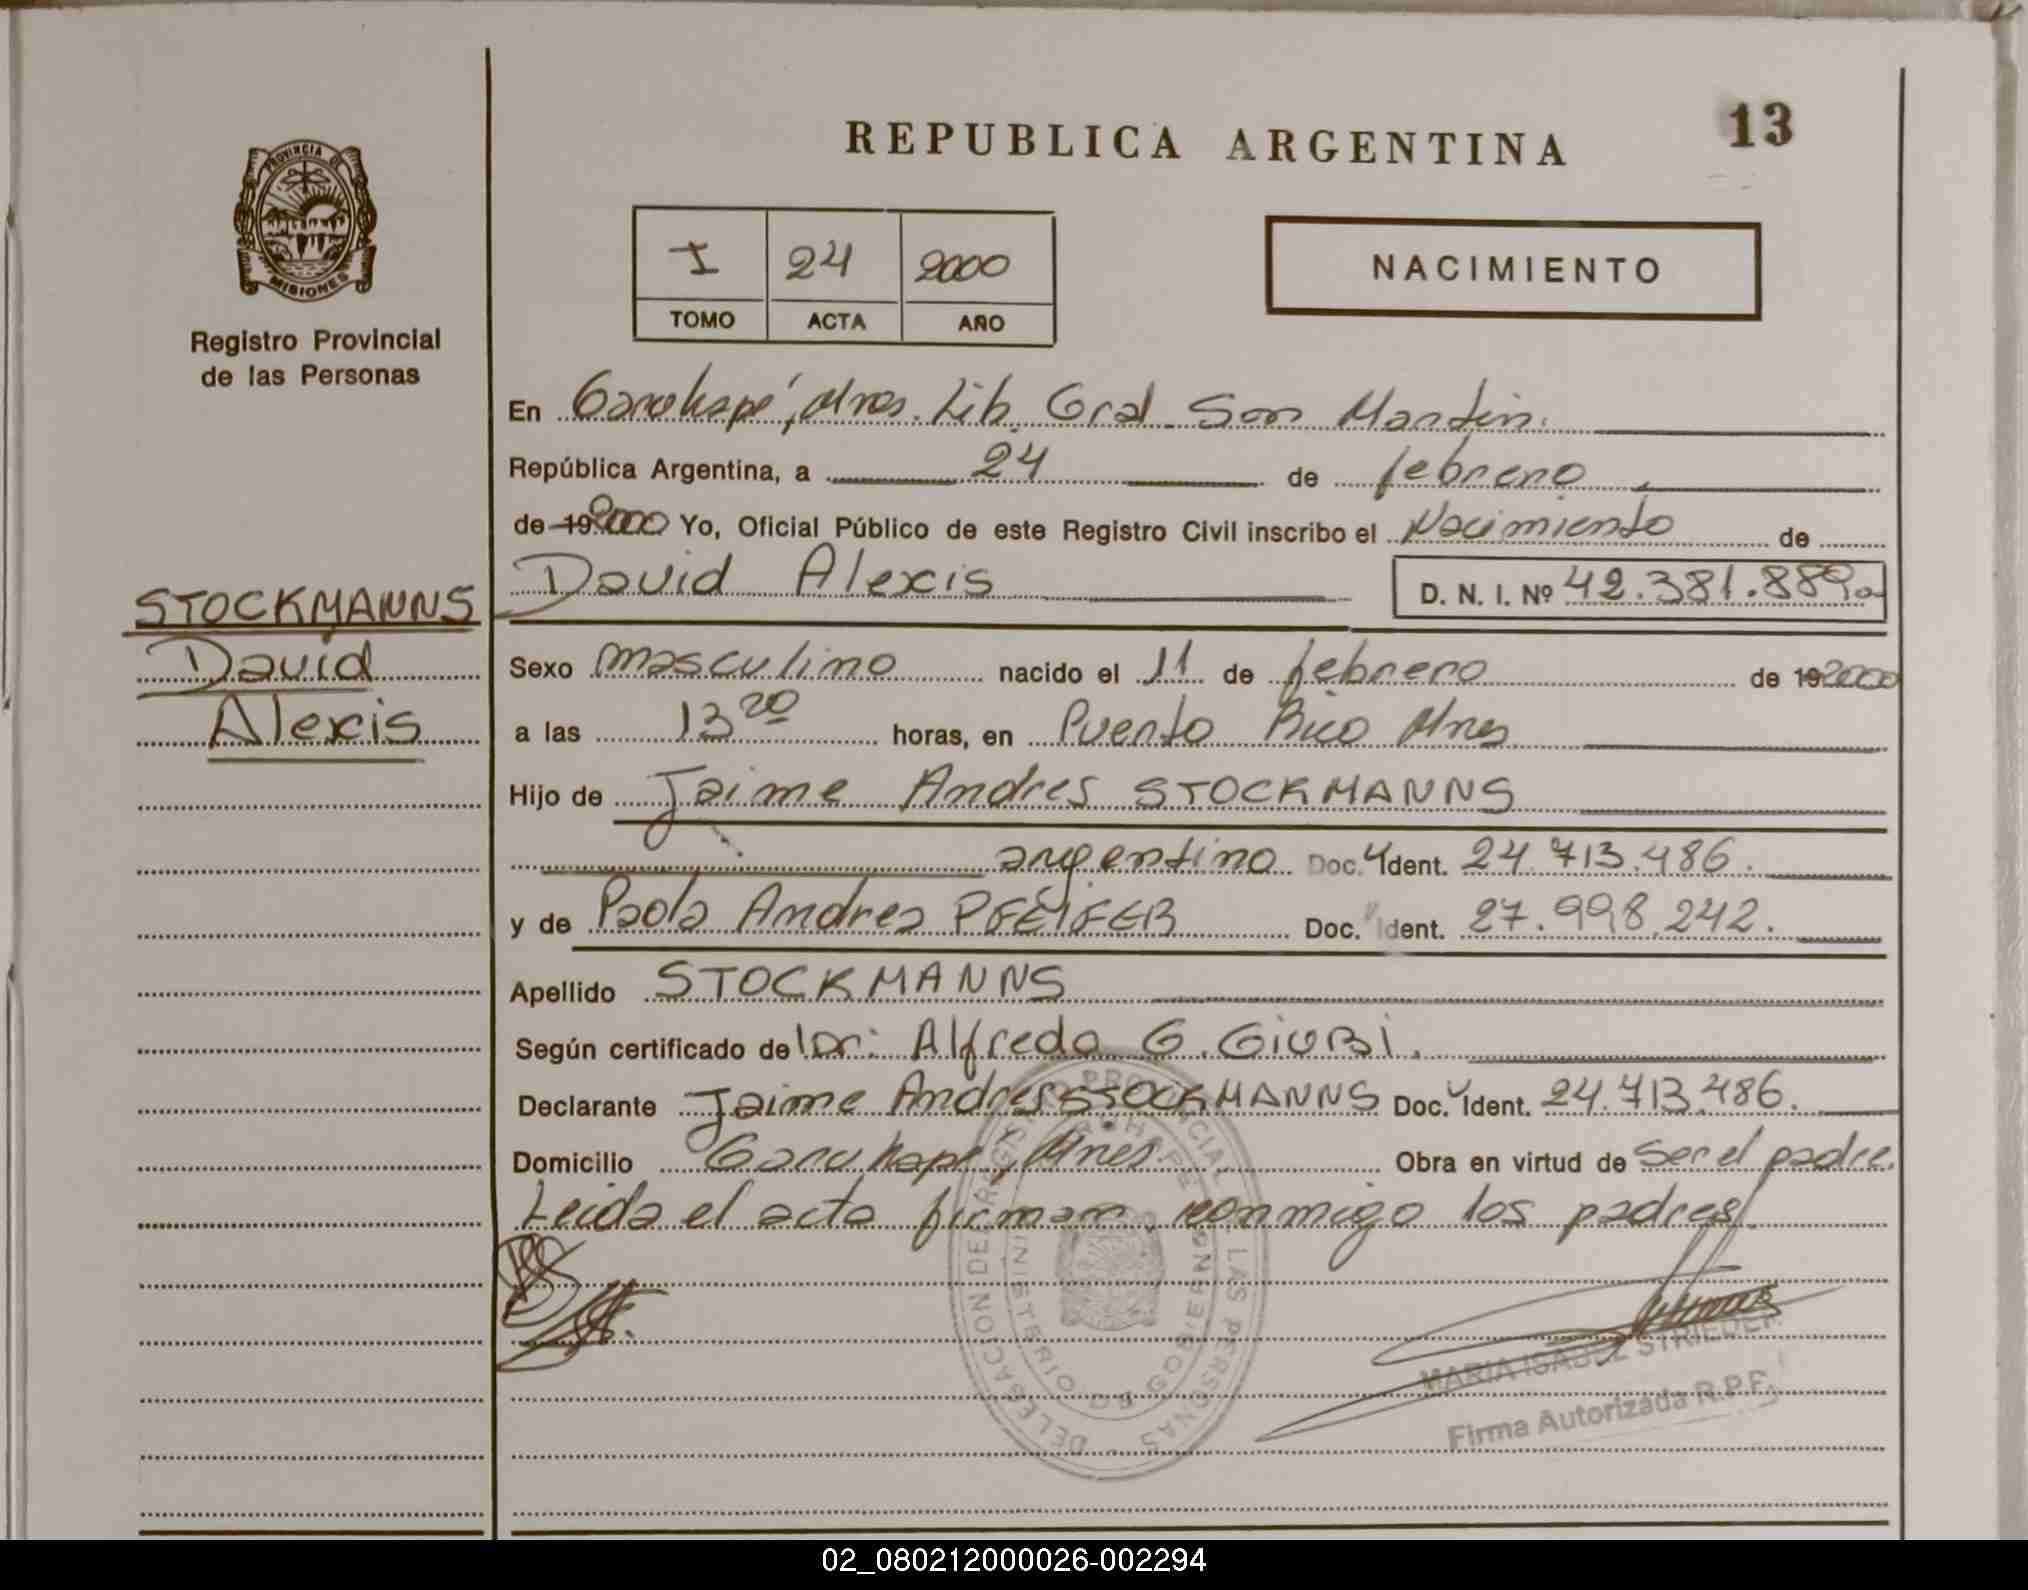 REPUBLICA ARGENTINA
13
PROVINCIA DE
MISIONES
Registro Provincial
de las Personas
I 24 2000
TOMO ACTA AÑO
NACIMIENTO
En Garuhapé, Mnes. Lib. Gral. San Martin.
República Argentina, a 24 de febrero
de 19 2000 Yo, Oficial Público de este Registro Civil inscribo el Nacimiento de
David Alexis D. N. I. Nº 42.381.889
STOCKMANNS
David
Alexis
Sexo masculino nacido el 11 de febrero de 19 2000
a las 13 20 horas, en Puerto Rico Mnes
Hijo de Jaime Andres STOCKMANNS
argentino Doc. Ident. 24.713.486.
y de Paola Andrea PFEIFER Doc. Ident. 27.998.242.
Apellido STOCKMANNS
Según certificado de Dr: Alfredo G. GIUBI.
Declarante Jaime Andres STOCKMANNS Doc. Ident. 24.713.486.
Domicilio Garuhapé, Mnes. Obra en virtud de ser el padre.
Leida el acta firman conmigo los padres.
DELEGACION DE REGISTRO PROVINCIAL LAS PERSONAS
MINISTERIO DE GOBIERNO
MARIA ISABEL STRIEDER
Firma Autorizada R.P.F.
02_080212000026-002294